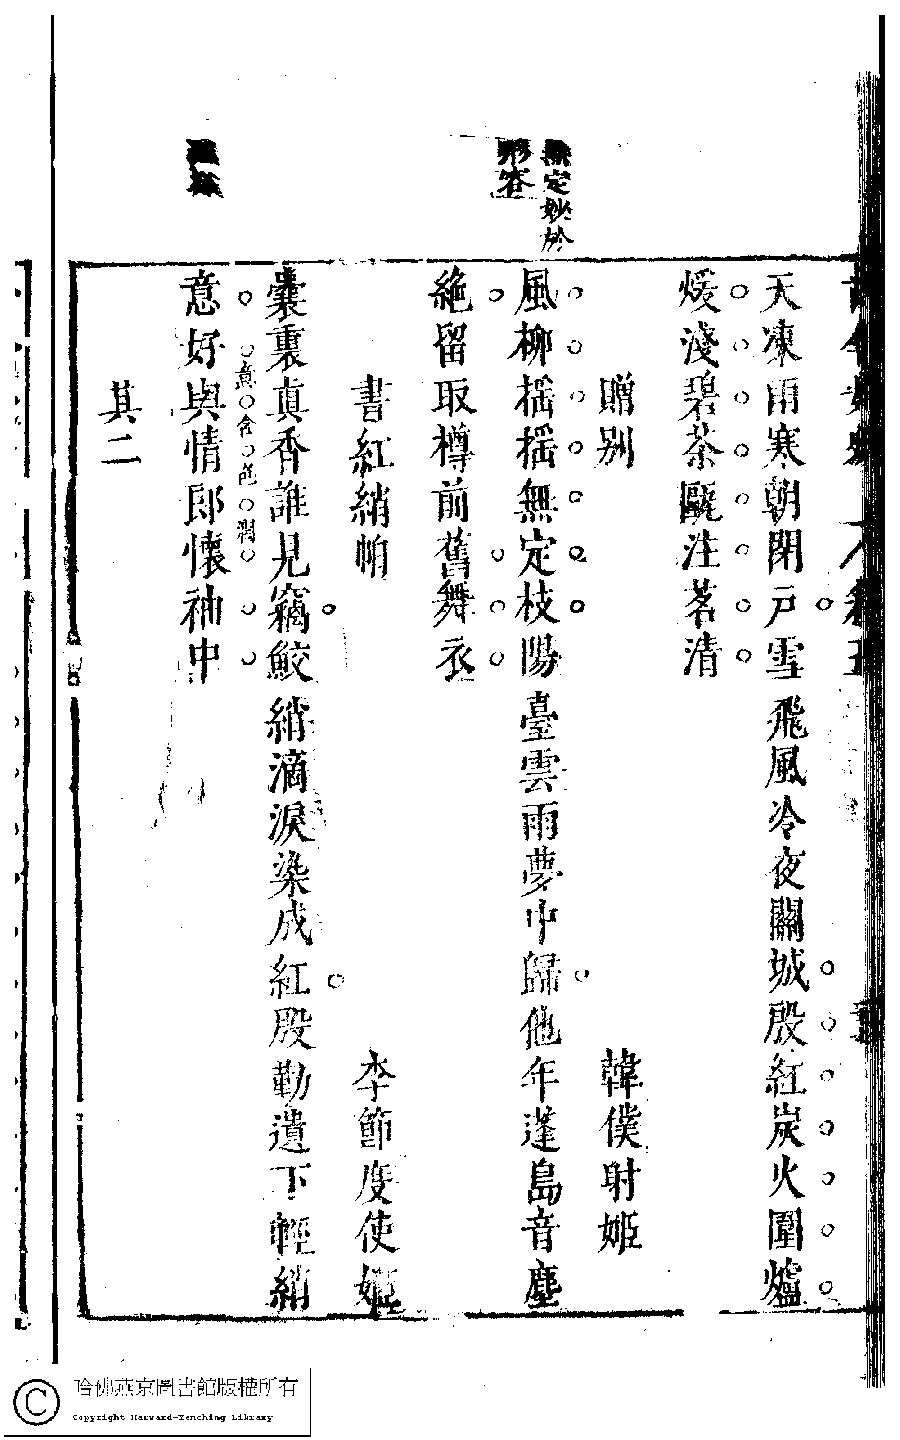 天凍雨寒朝閉戸雪飛風冷夜關城殷紅炭火圍爐
煖淺碧茶甌注茗清
贈別 韓僕射姬
無定妙於
形容
風柳搖搖無定枝陽臺雲雨夢中歸他年蓬島音塵
絶留取樽前舊舞衣
書紅綃帕 李節度使姬
囊裹真香誰見竊鮫綃滴淚染成紅殷勤遺下輕綃
意含
意好與情郎懷袖中
其二
哈佛燕京圖書館版權所有
Copyright Harvard-Yenching Library